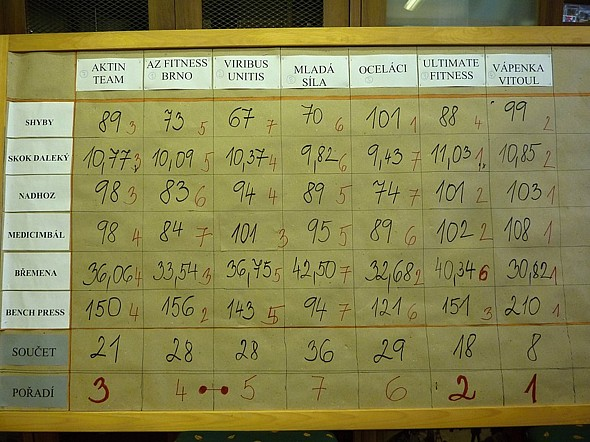 AKTIN TEAM AZ FITNESS BRNO VIRIBUS UNITIS MLADÁ SÍLA OCELÁCI ULTIMATE FITNESS VÁPENKA VITOUL
SHYBY 89 3 73 5 67 7 70 6 101 1 88 4 99 2
SKOK DALEKÝ 10,77 3 10,09 5 10,37 4 9,82 6 9,43 7 11,03 1 10,85 2
NADHOZ 98 3 83 6 94 4 89 5 74 7 101 2 103 1
MEDICIMBÁL 98 4 84 7 101 3 95 5 89 6 102 2 108 1
BŘEMENA 36,06 4 33,54 3 36,75 5 42,50 7 32,68 2 40,34 6 30,82 1
BENCH PRESS 150 4 156 2 143 5 94 7 121 6 151 3 210 1
SOUČET 21 28 28 36 29 18 8
POŘADÍ 3 4 5 7 6 2 1